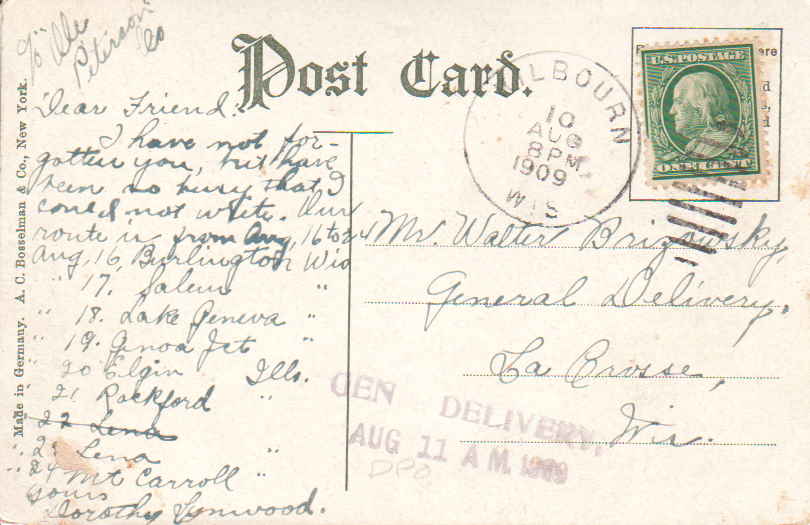 Post Card.
U.S. POSTAGE
ONE CENT
KILBOURN
10
AUG
8 PM
1909
WIS
Peterson
Co
Dear Friend:
I have not for-
gotten you, but have
been so busy that I
could not write. Our
route is from Aug. 16 to 24
Aug. 16, Burlington Wis
" 17. Salem "
" 18. Lake Geneva "
" 19. Genoa Jct "
" 20 Elgin Ills.
" 21 Rockford "
" 22 Lena
" 23 Lena "
" 24 Mt Carroll "
Yours
Dorothy Lynwood.
Mr. Walter Brigowsky,
General Delivery.
La Crosse,
Wis.
GEN DELIVERY,
AUG 11 A M. 1909
DPO
Made in Germany. A. C. Bosselman & Co., New York.